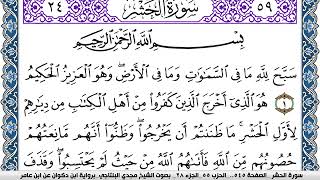 ٢٤ سُورَةُ الحَشْرِ ٥٩
بِسْمِ اللَّهِ الرَّحْمَٰنِ الرَّحِيمِ
سَبَّحَ لِلَّهِ مَا فِى السَّمَٰوَٰتِ وَمَا فِى الْأَرْضِ وَهُوَ الْعَزِيزُ الْحَكِيمُ
١ هُوَ الَّذِى أَخْرَجَ الَّذِينَ كَفَرُوا مِنْ أَهْلِ الْكِتَٰبِ مِن دِيَٰرِهِمْ
لِأَوَّلِ الْحَشْرِ مَا ظَنَنتُمْ أَن يَخْرُجُوا وَظَنُّوا أَنَّهُم مَّانِعَتُهُمْ
حُصُونُهُم مِّنَ اللَّهِ فَأَتَىٰهُمُ اللَّهُ مِنْ حَيْثُ لَمْ يَحْتَسِبُوا وَقَذَفَ
سورة الحشر - الصفحة ٥٤٥ - الحزب ٥٥ - الجزء ٢٨ - بصوت الشيخ مجدي البلتاجي برواية ابن ذكوان عن ابن عامر